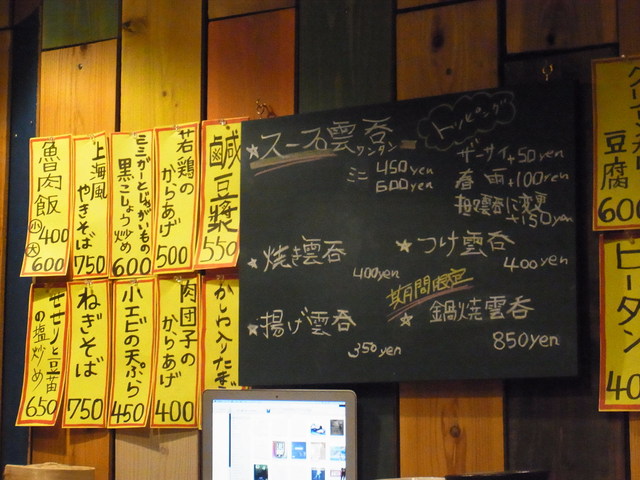 魯肉飯
小 400
大 600
上海風
やきそば
750
ミミガーとじゃがいもの
黒こしょう炒め
600
若鶏の
からあげ
500
鹹豆漿
550
の塩炒め
650
ねぎそば
750
小エビの天ぷら
450
肉団子の
からあげ
400
★スープ雲呑
ワンタン
ミニ 450yen
600yen
トッピング
ザーサイ+50yen
春雨+100yen
担々雲呑に変更
+150yen
★焼き雲呑
400yen
★つけ雲呑
400yen
★揚げ雲呑
350yen
期間限定
★鍋焼雲呑
850yen
豆腐
600
ピータン